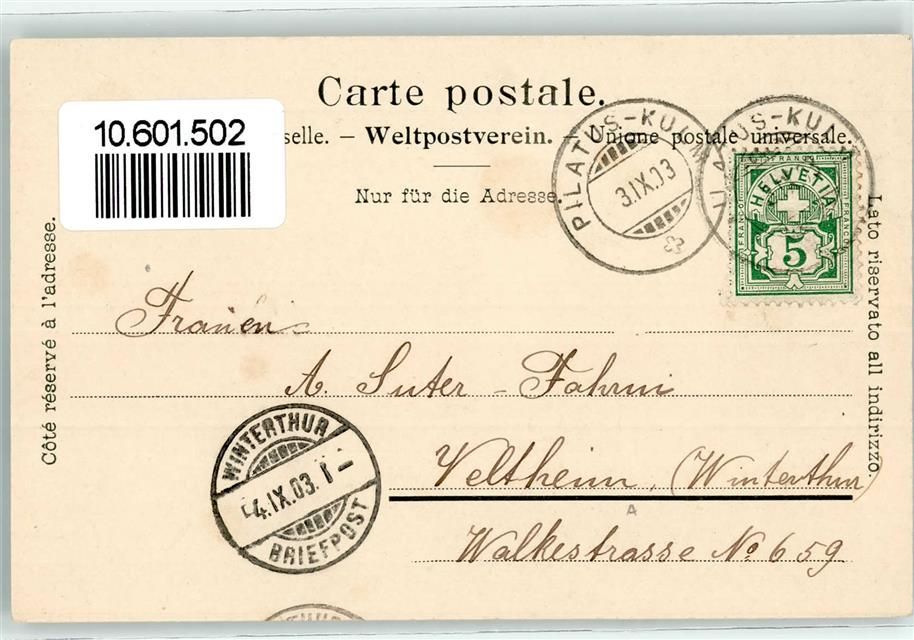 Carte postale.
10.601.502
selle. – Weltpostverein. – Unione postale universale.
Nur für die Adresse.
PILATUS-KULM
3.IX.03
US-KU
HELVETIA
FRANCO
5
Côté réservé à l'adresse.
Lato riservato all indirizzo.
Frauen
A. Suter-Fahrni
Veltheim, (Winterthur)
A
Walkestrasse No 659
WINTERTHUR
4.IX.03.
BRIEFPOST